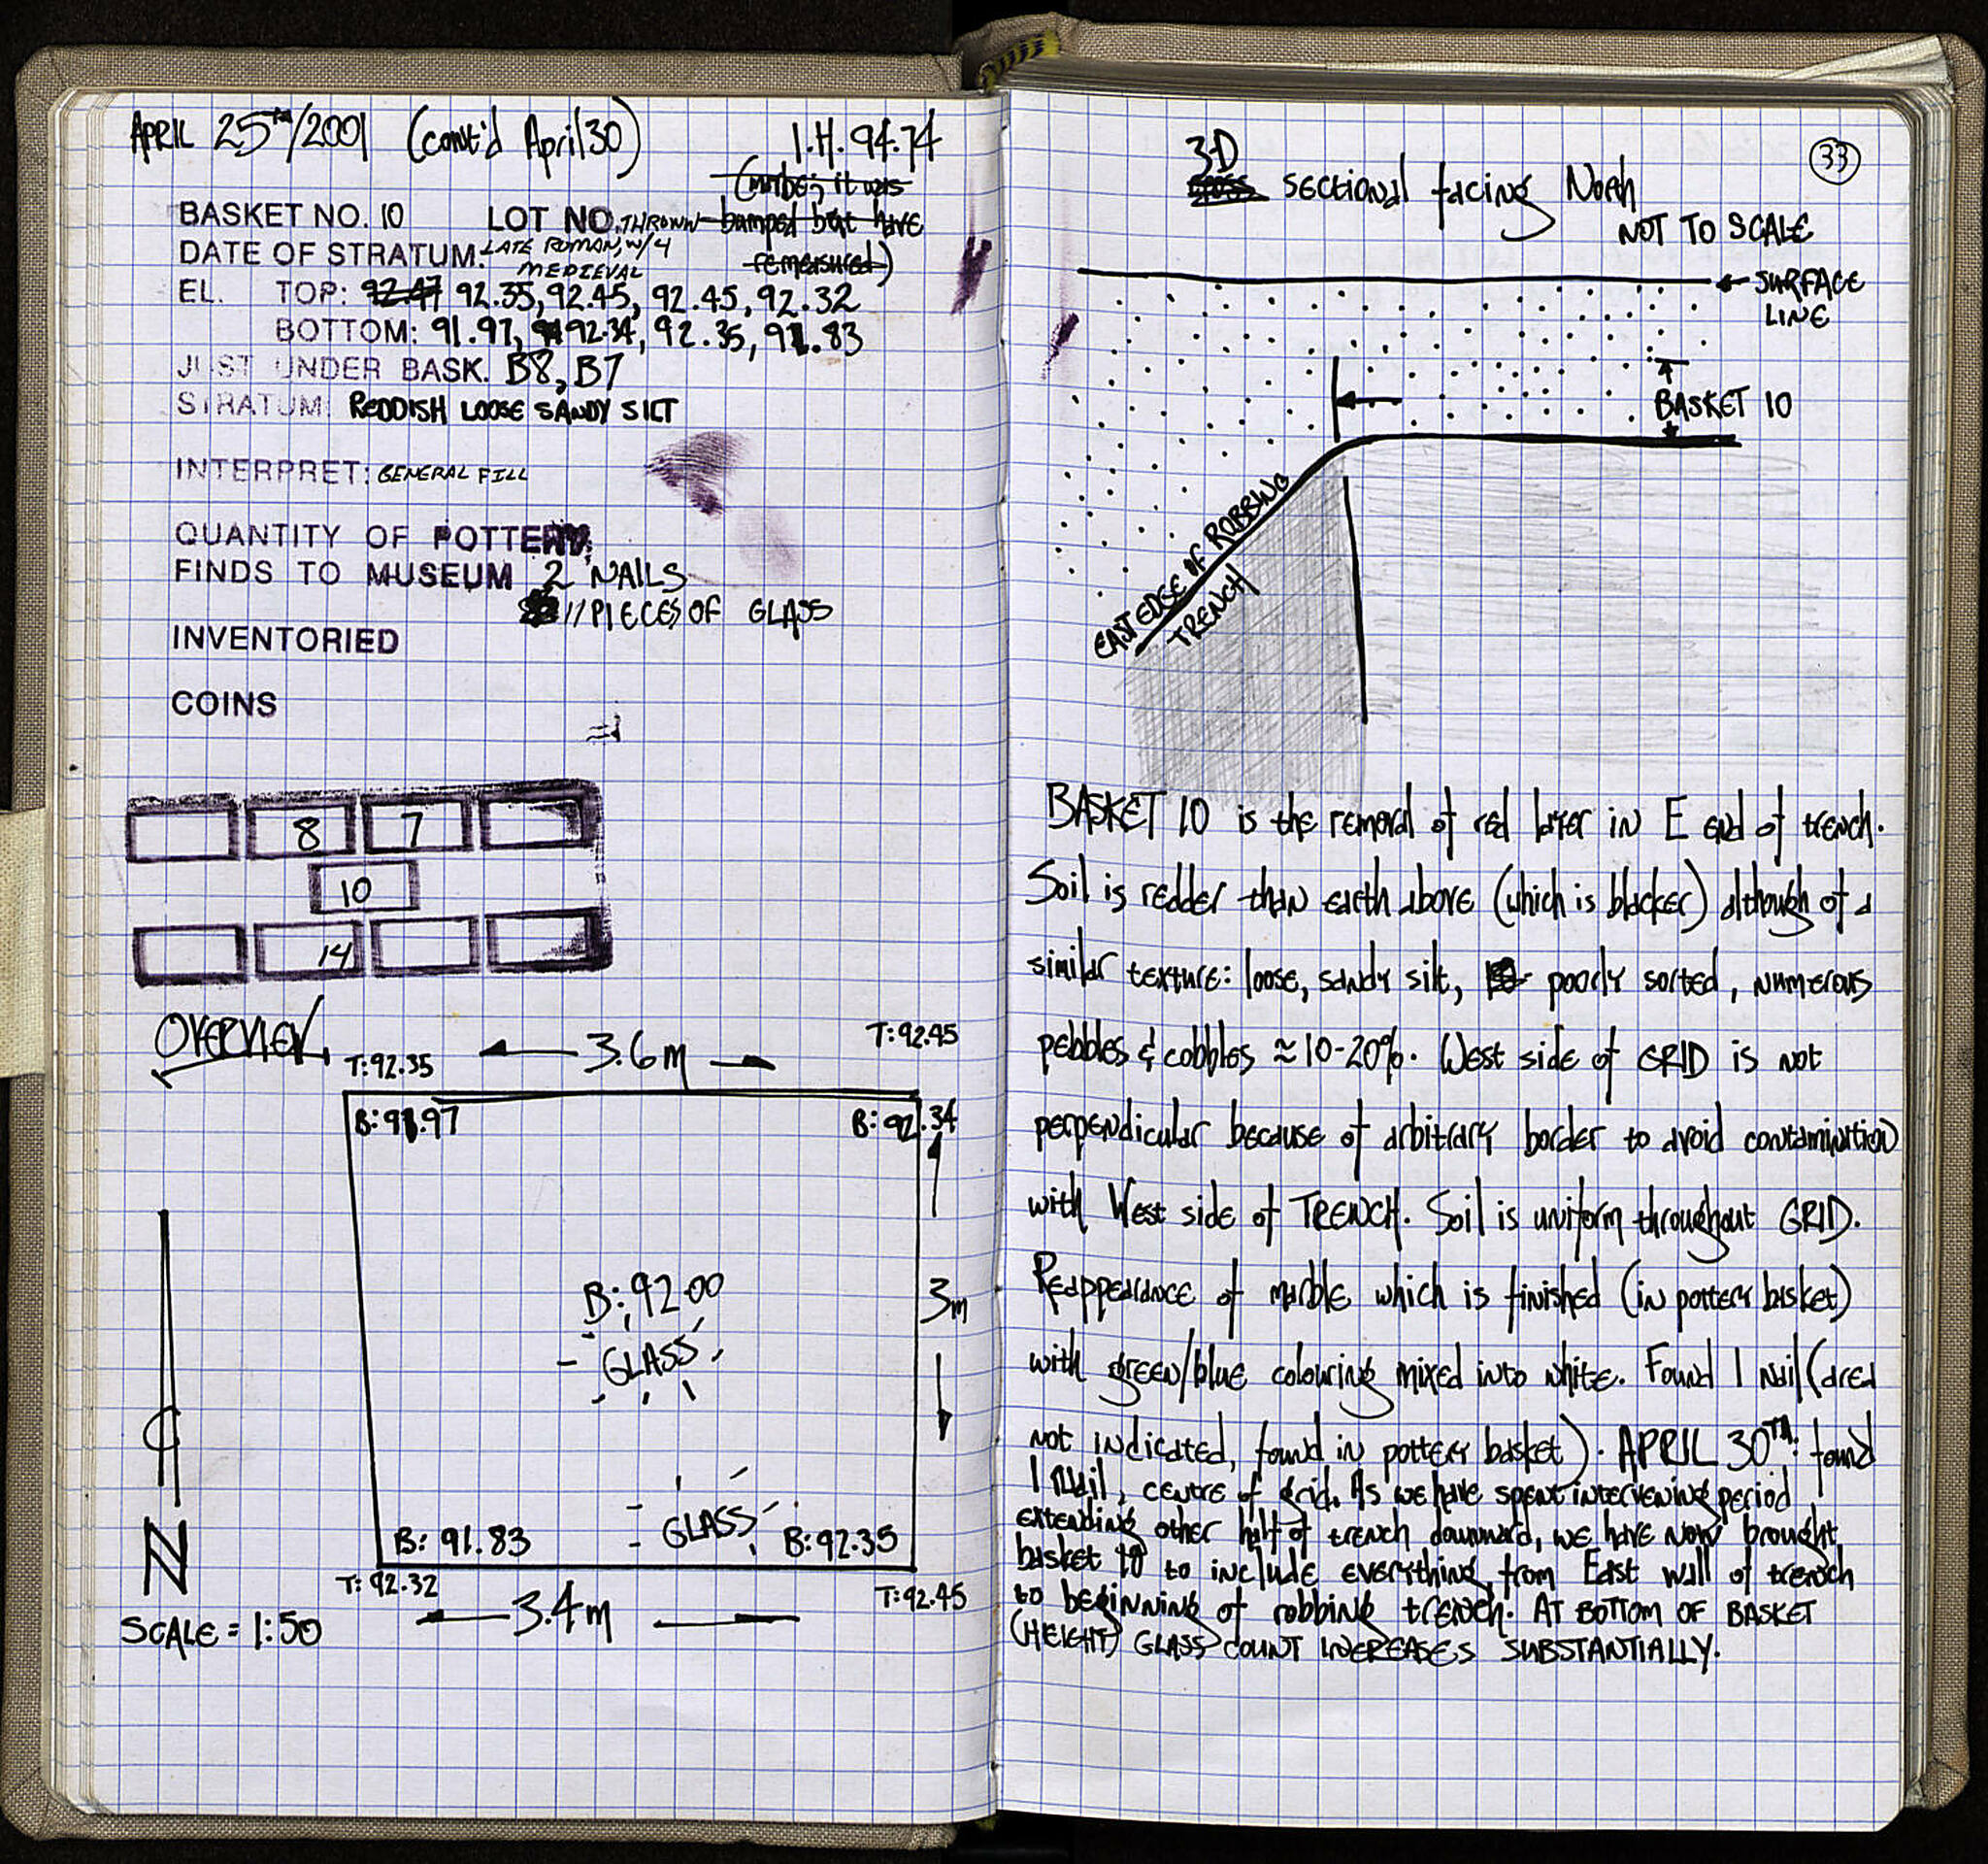 APRIL 25TH/2001 (cont'd April 30) I.H. 94.74
(maybe; it was
BASKET NO. 10 LOT NO. THROWN bumped but have
DATE OF STRATUM: LATE ROMAN, W/4 remeasured)
MEDIEVAL
EL. TOP: 92.47 92.35, 92.45, 92.45, 92.32
BOTTOM: 91.97, 92.34, 92.35, 91.83
JUST UNDER BASK. B8, B7
STRATUM: REDDISH LOOSE SANDY SILT
INTERPRET: GENERAL FILL
QUANTITY OF POTTERY
FINDS TO MUSEUM 2 NAILS
11 PIECES OF GLASS
INVENTORIED
COINS
8 7
10
14
OVERVIEW
T: 92.35 3.6m T: 92.45
B: 91.97 B: 92.34
B: 92.00
GLASS
3m
GLASS
B: 91.83 B: 92.35
T: 92.32 T: 92.45
3.4m
N
SCALE = 1:50
33
3-D
cross sectional facing North
NOT TO SCALE
SURFACE
LINE
BASKET 10
EAST EDGE OF ROBBING
TRENCH
BASKET 10 is the removal of red layer in E end of trench.
Soil is redder than earth above (which is blacker) although of a
similar texture: loose, sandy silt, poorly sorted, numerous
pebbles & cobbles ≈ 10-20%. West side of GRID is not
perpendicular because of arbitrary border to avoid contamination
with West side of TRENCH. Soil is uniform throughout GRID.
Reappearance of marble which is finished (in pottery basket)
with green/blue colouring mixed into white. Found 1 nail (area
not indicated, found in pottery basket). APRIL 30TH: found
1 Nail, centre of grid. As we have spent intervening period
extending other half of trench downward, we have now brought
basket 10 to include everything from East wall of trench
to beginning of robbing trench. AT BOTTOM OF BASKET
(HEIGHT) GLASS COUNT INCREASES SUBSTANTIALLY.